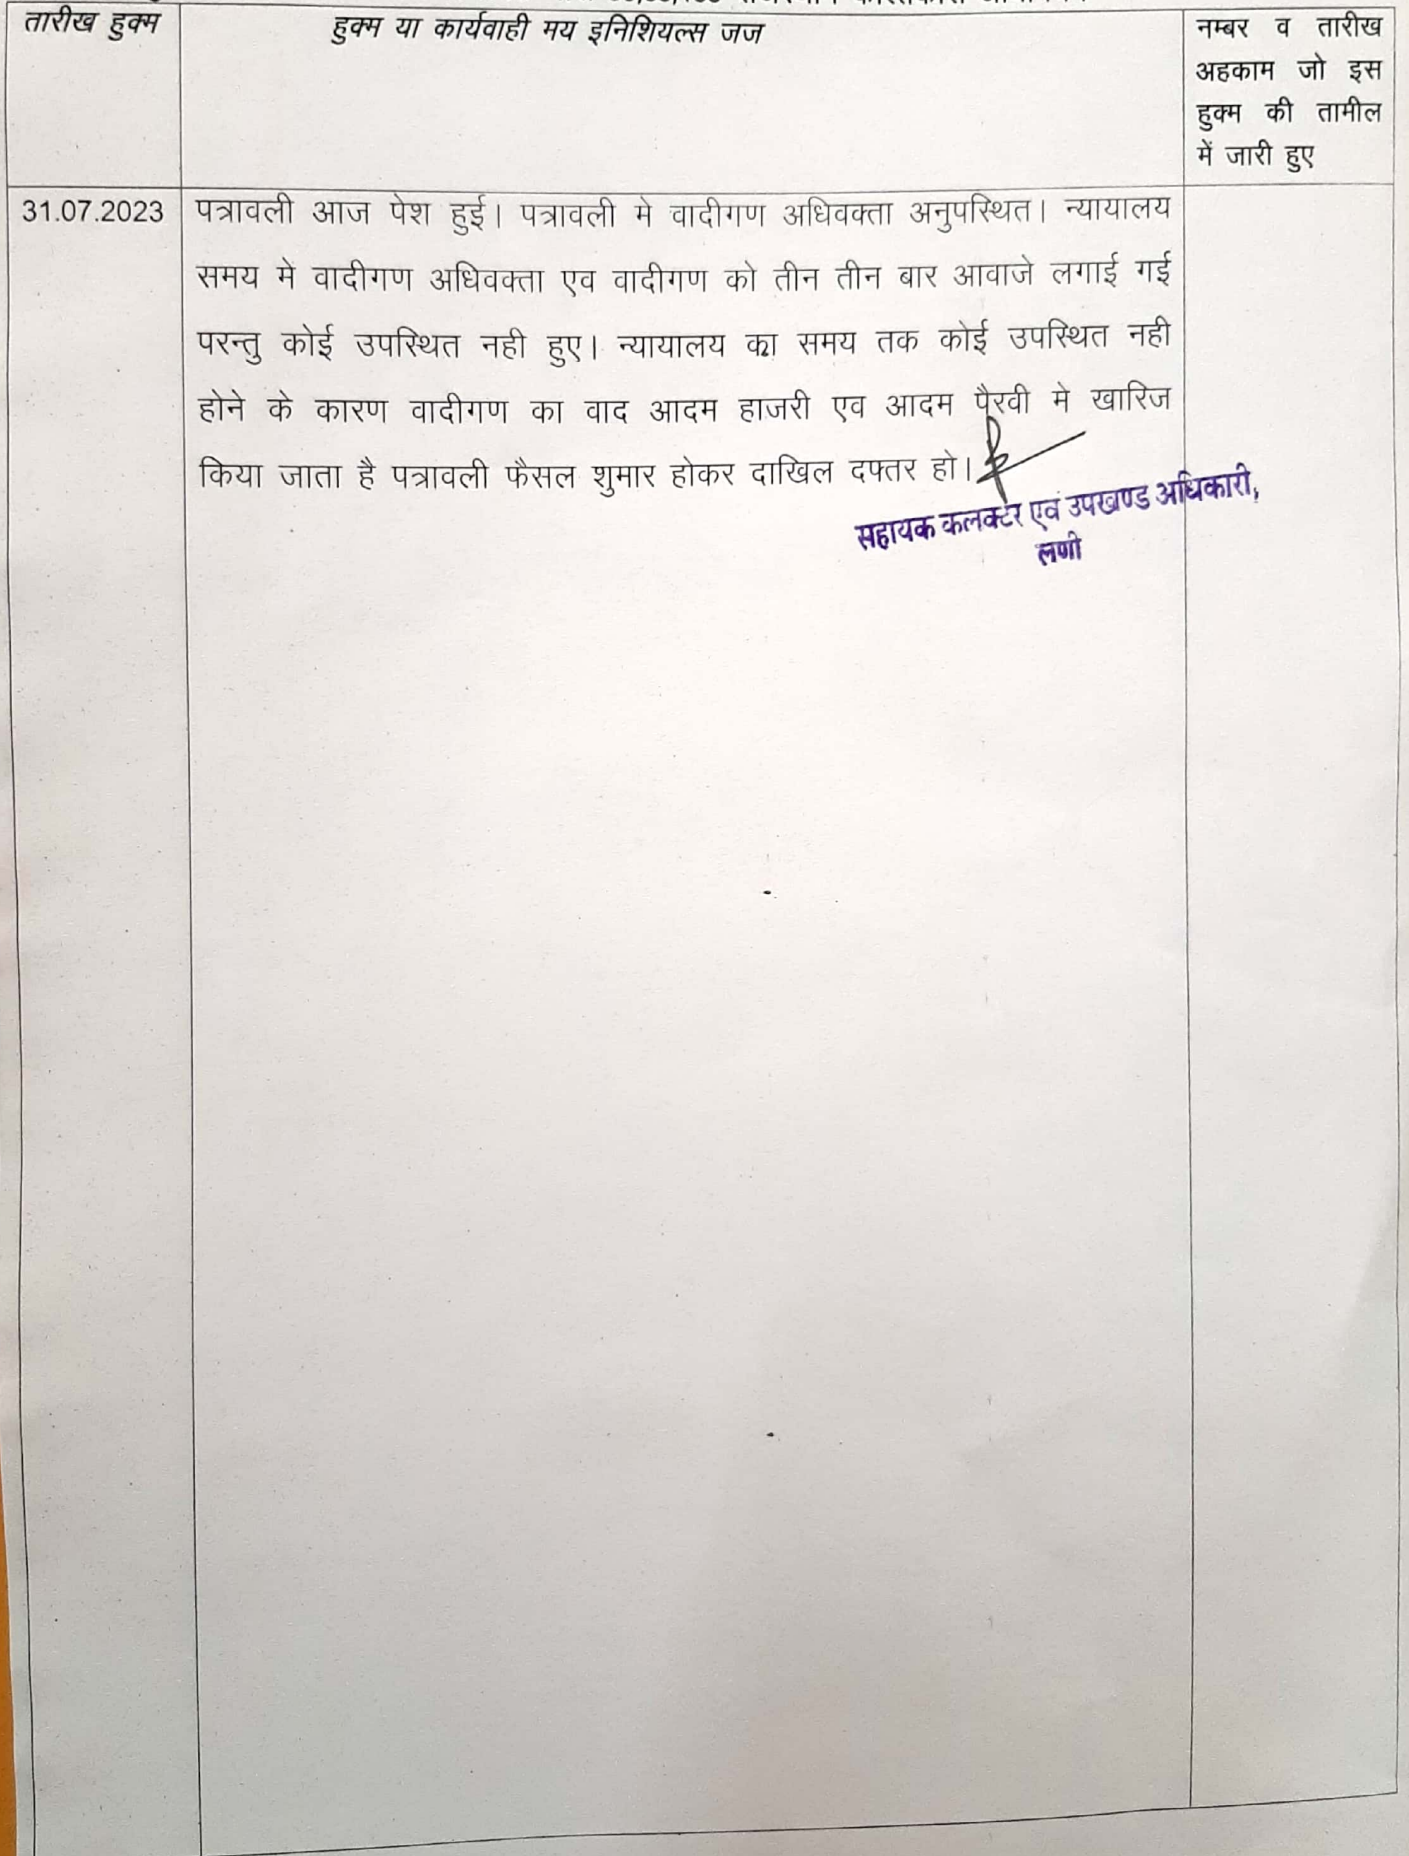 तारीख हुक्म
हुक्म या कार्यवाही मय इनिशियल्स जज
नम्बर व तारीख
अहकाम जो इस
हुक्म की तामील
में जारी हुए
31.07.2023
पत्रावली आज पेश हुई। पत्रावली मे वादीगण अधिवक्ता अनुपस्थित। न्यायालय
समय मे वादीगण अधिवक्ता एव वादीगण को तीन तीन बार आवाजे लगाई गई
परन्तु कोई उपस्थित नही हुए। न्यायालय का समय तक कोई उपस्थित नही
होने के कारण वादीगण का वाद आदम हाजरी एव आदम पैरवी मे खारिज
किया जाता है पत्रावली फैसल शुमार होकर दाखिल दफ्तर हो।
सहायक कलक्टर एवं उपखण्ड अधिकारी,
लणी